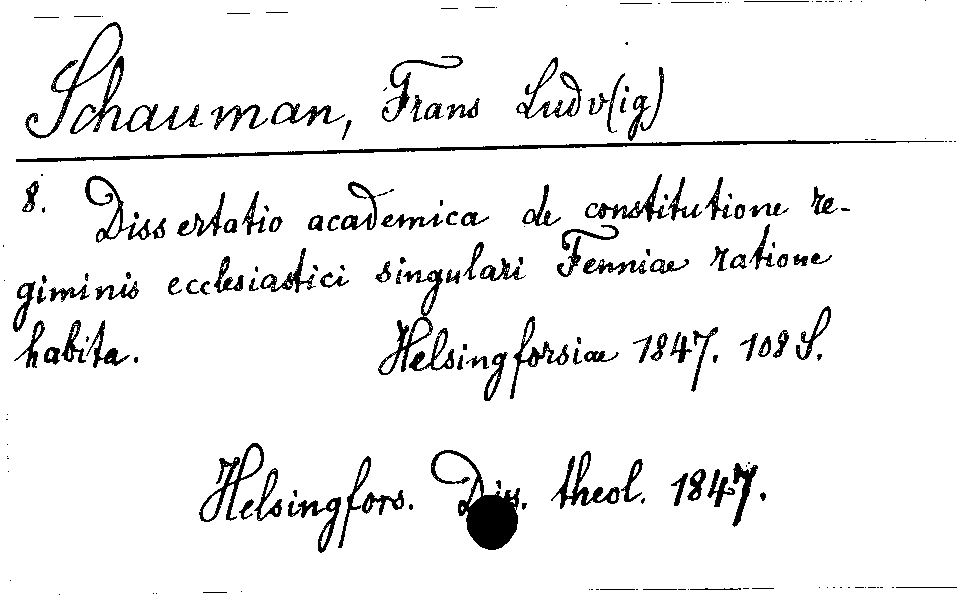 Schauman, Frans Ludv(ig)
8. Dissertatio academica de constitutione re-
giminis ecclesiastici singulari Fenniae ratione
habita. Helsingforsiae 1847. 108 S.
Helsingfors. Diss. theol. 1847.